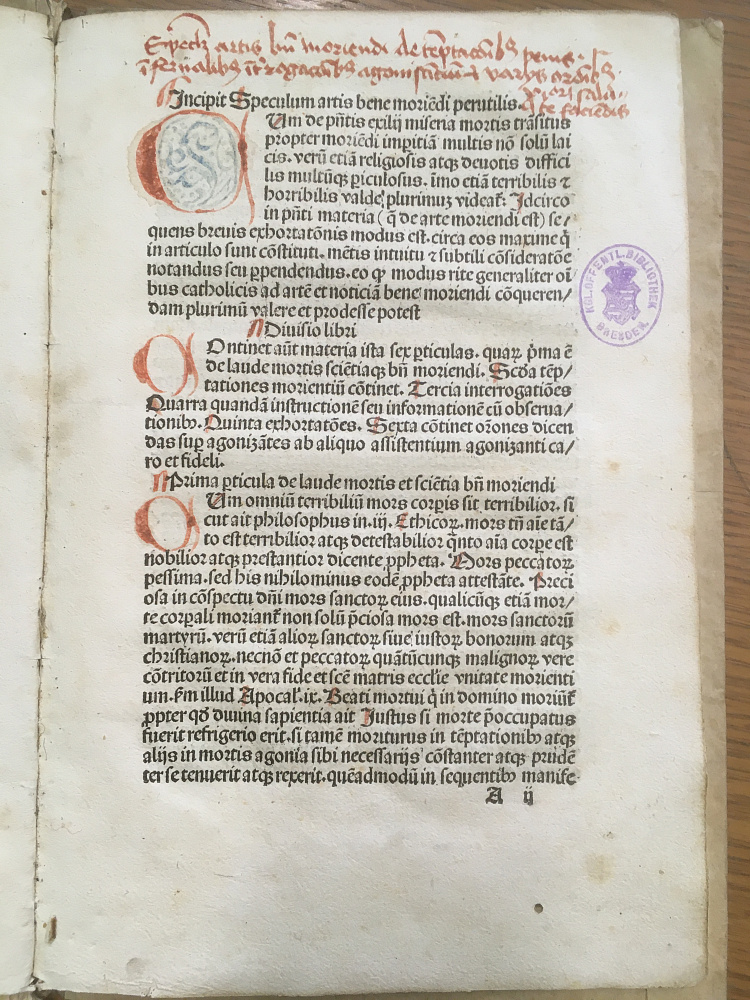 artis bñ moriendi de
Incipit Speculum artis bene moriẽdi perutilis.
Um de pñtis exilij miseria mortis trãsitus
propter moriẽdi impitiã multis nõ solũ lai
cis. verũ etiã religiosis atqꝫ deuotis diffici
lis multũqꝫ piculosus. ĩmo etiã terribilis ⁊
horribilis valde plurimuꝫ videat᷑. Idcirco
in pñti materia (q̃ de arte moriendi est) se/
quens breuis exhortatõnis modus est. circa eos maxime q̃
in articulo sunt cõstituti. mẽtis intuitu ⁊ subtili cõsideratõe
notandus seu ꝑpendendus. eo ꝙ modus rite generaliter oĩ
bus catholicis ad artẽ et noticiã bene moriendi cõqueren/
dam plurimũ valere et prodesse potest
Diuisio libri
Ontinet aũt materia ista sex ꝑticulas. quaꝝ p̃ma ẽ
de laude mortis sciẽtiaqꝫ bñ moriendi. Scða tẽp/
tationes morientiũ cõtinet. Tercia interrogatiões
Quarra quandã instructionẽ seu informationẽ cũ obserua/
tionibꝰ. Quinta exhortatões. Sexta cõtinet or̃ones dicen
das suꝑ agonizãtes ab aliquo assistentium agonizanti ca/
ro et fideli.
Prima ꝑticula de laude mortis et sciẽtia bñ moriendi
Um omniũ terribiliũ mors corpĩs sit terribilior. si
cut ait philosophus in .iij. Ethicoꝝ. mors tñ aĩe tã/
to est terribilior atqꝫ detestabilior q̃nto aĩa corpe est
nobilior atqꝫ prestantior dicente ꝓpheta. Mors peccatoꝝ
pessima. sed his nihilominus eodẽ ꝓpheta attestãte. Preci
osa in cõspectu dñi mors sanctoꝝ eius. qualicũqꝫ etiã mor/
te corꝑali moriant᷑ non solũ p̃ciosa mors est. mors sanctorũ
martyrũ. verũ etiã alioꝝ sanctoꝝ siue iustoꝝ bonorum atqꝫ
christianoꝝ. necnõ et peccatoꝝ quãtũcunqꝫ malignoꝝ vere
cõtritorũ et in vera fide et scẽ matris ecclie vnitate morienti
um. ẜm illud Apocal᷑. ix. Beati mortui q̃ in domino moriũt᷑
ꝓpter qð diuina sapientia ait Justus si morte p̃occupatus
fuerit refrigerio erit. si tamẽ moriturus in tẽptationibꝰ atqꝫ
alijs in mortis agonia sibi necessarijs cõstanter atqꝫ prudẽ
ter se tenuerit atqꝫ rexerit. quẽadmodũ in sequentibꝰ manife
A ij
KGL. OEFFENTL. BIBLIOTHEK
DRESDEN.